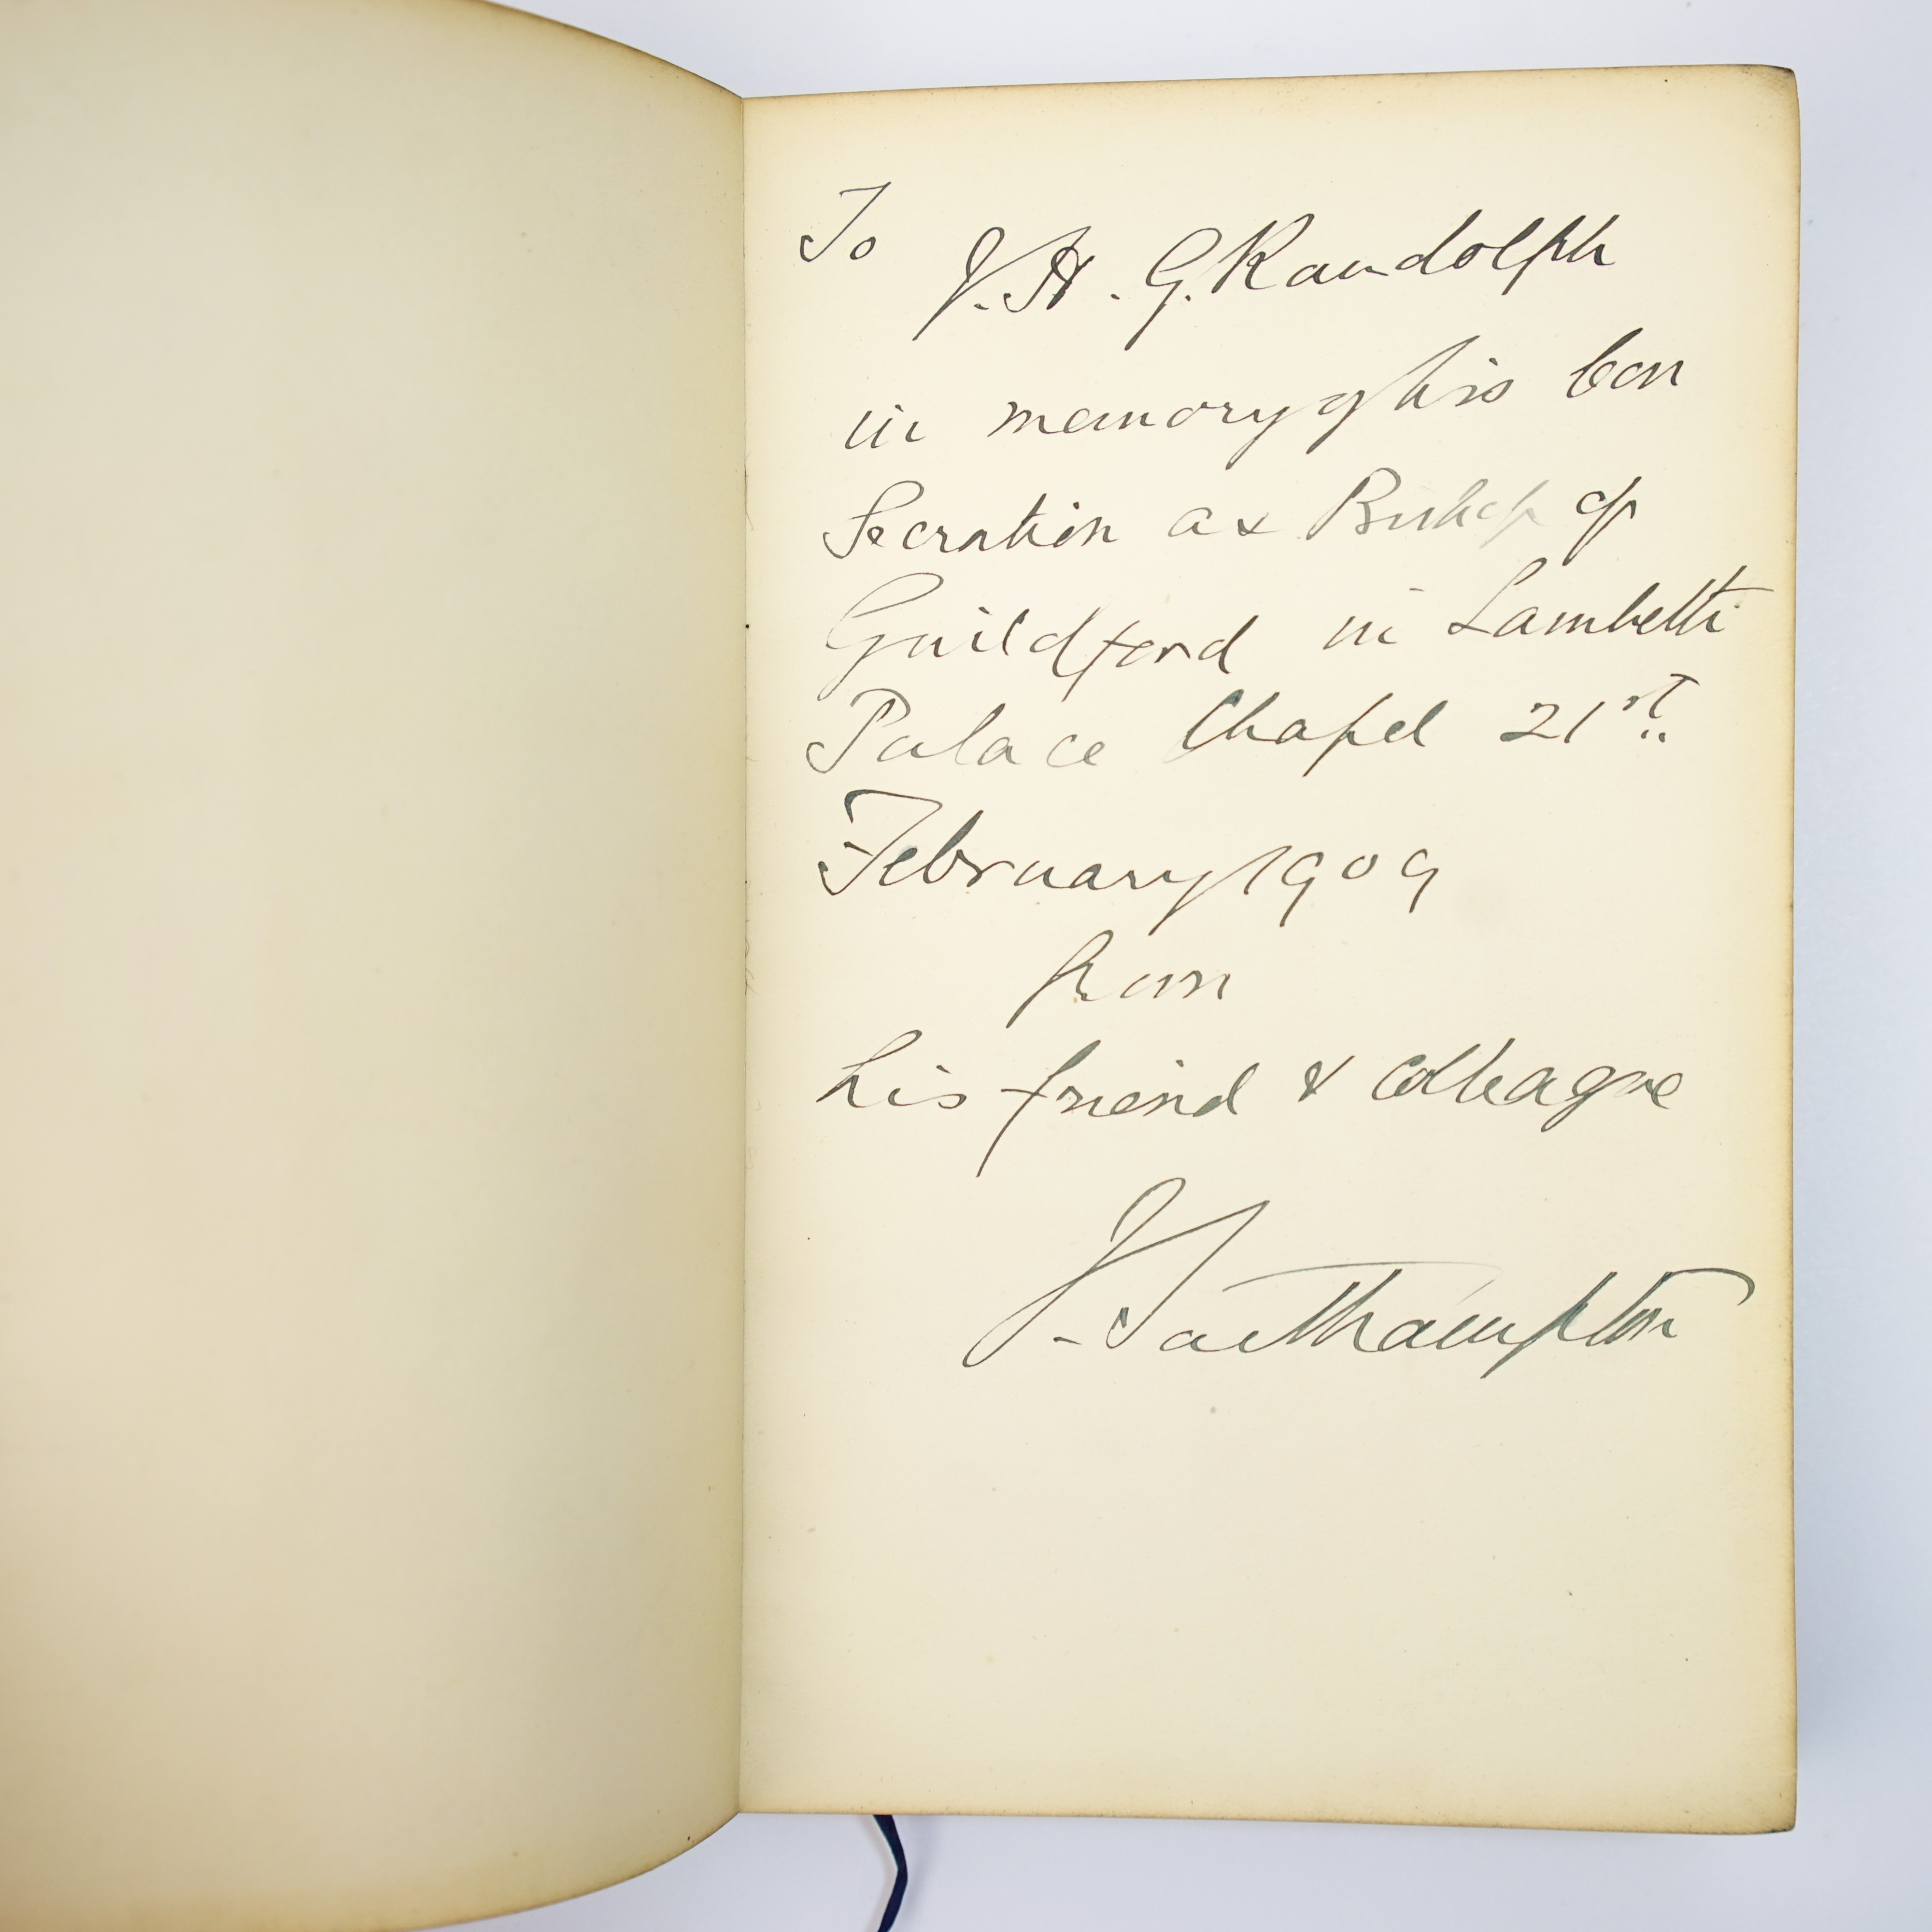 To
J. H. G. Randolph
in memory of his Con
Secration as Bishop of
Guildford in Lambeth
Palace Chapel 21st
February 1909
from
his friend & colleague
J. Southampton